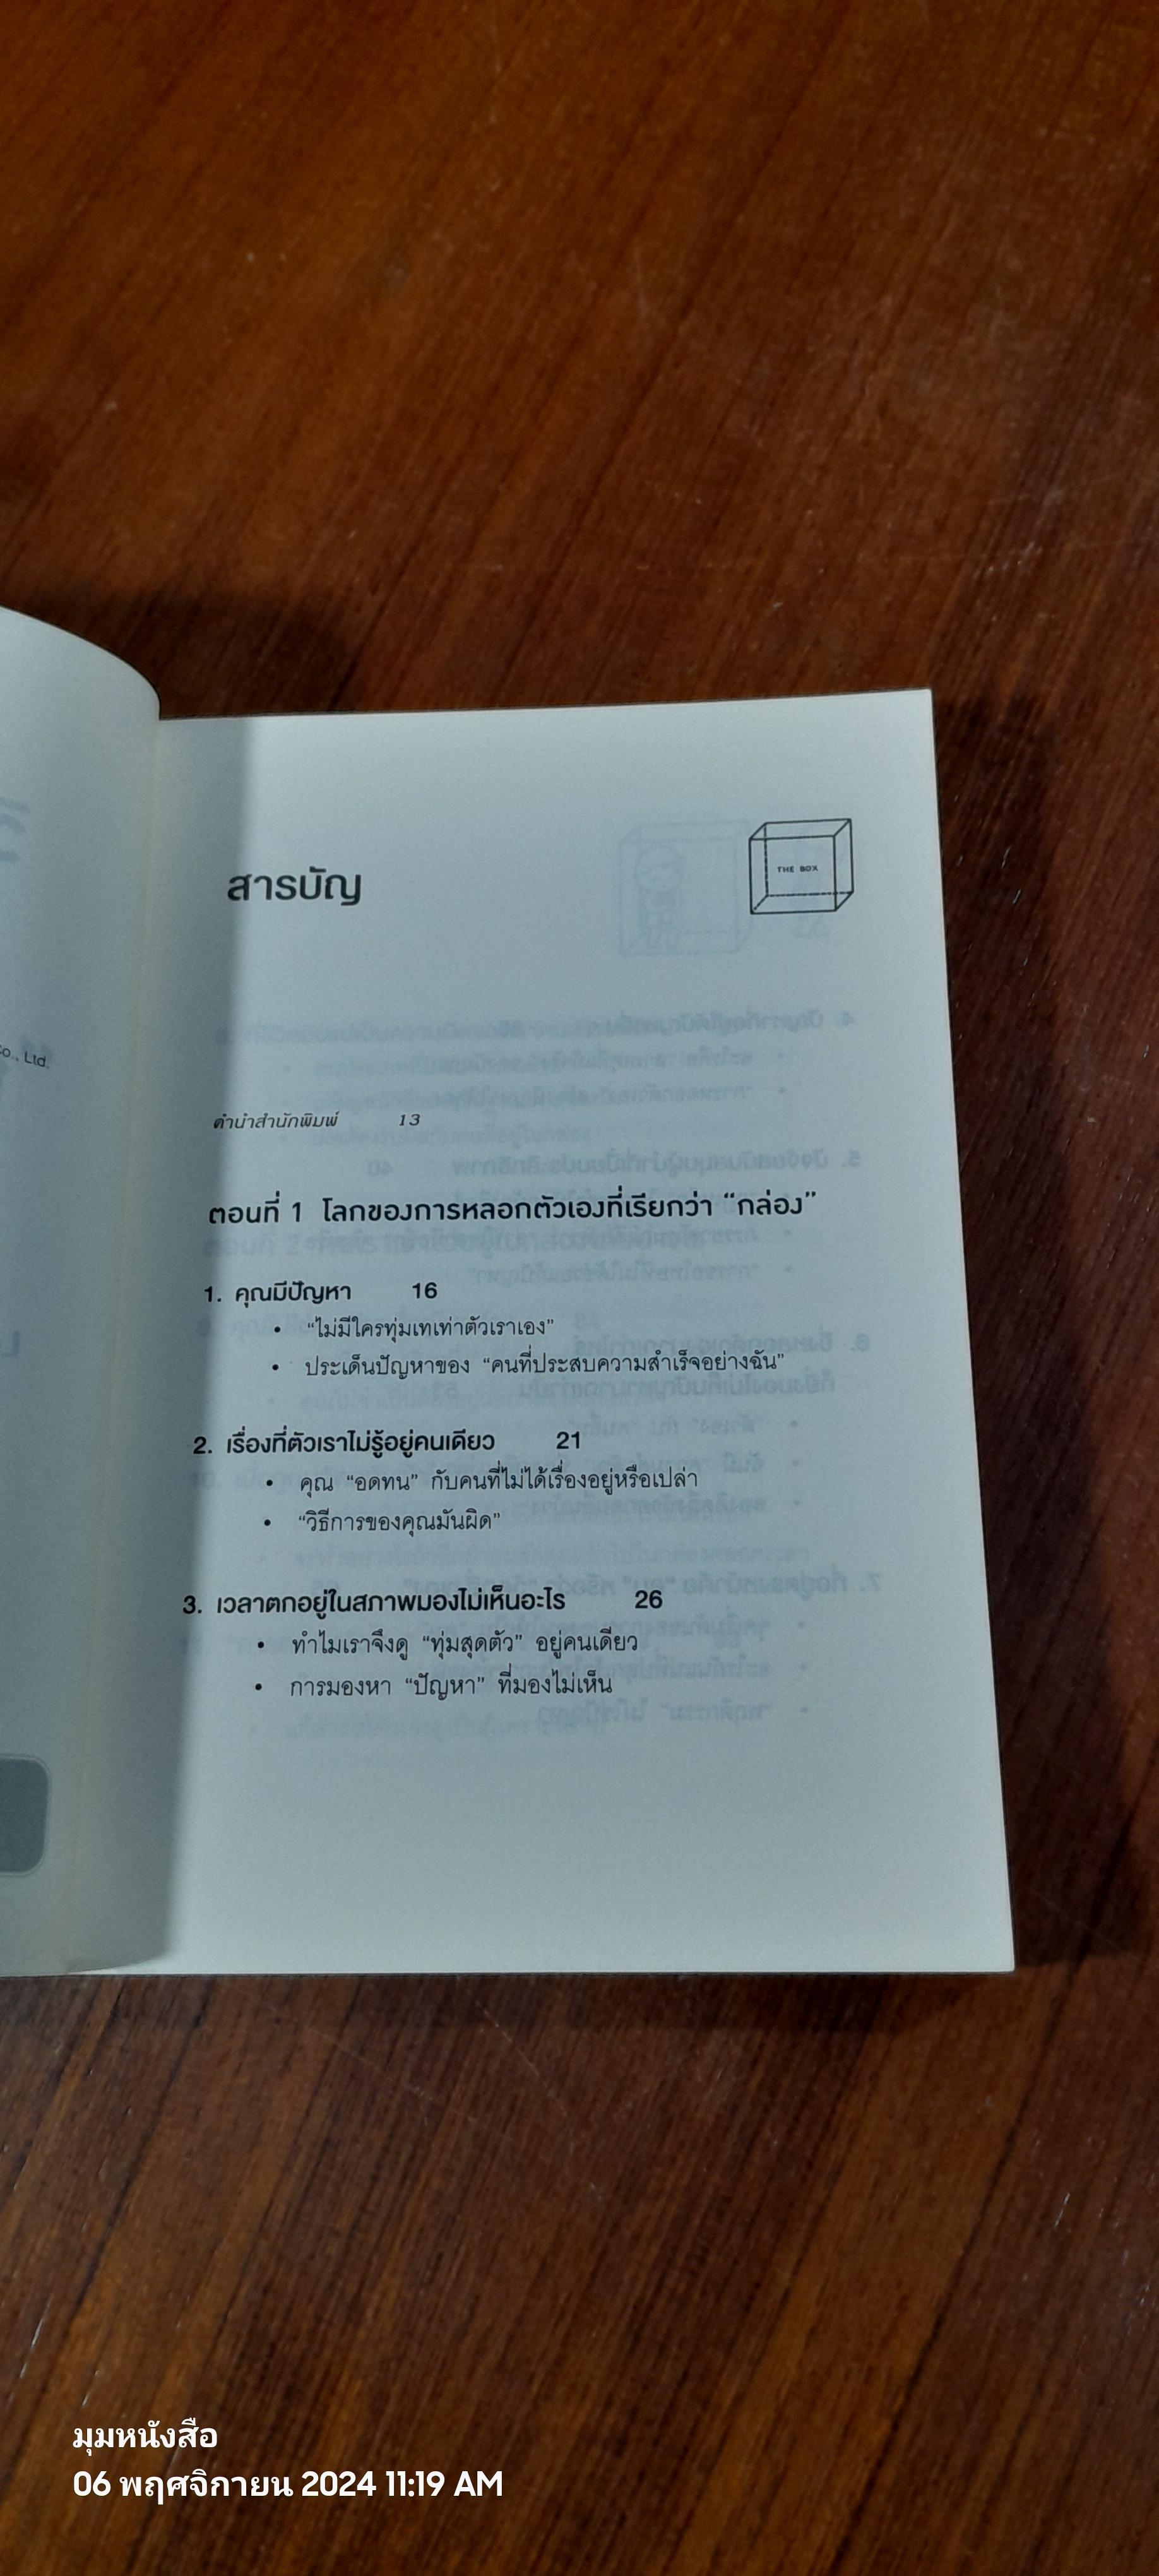 Co., Ltd.
สารบัญ
THE BOX
คำนำสำนักพิมพ์ 13
ตอนที่ 1 โลกของการหลอกตัวเองที่เรียกว่า “กล่อง”
1. คุณมีปัญหา 16
• “ไม่มีใครทุ่มเทเท่าตัวเราเอง”
• ประเด็นปัญหาของ “คนที่ประสบความสำเร็จอย่างฉัน”
2. เรื่องที่ตัวเราไม่รู้อยู่คนเดียว 21
• คุณ “อดทน” กับคนที่ไม่ได้เรื่องอยู่หรือเปล่า
• “วิธีการของคุณมันผิด”
3. เวลาตกอยู่ในสภาพมองไม่เห็นอะไร 26
• ทำไมเราจึงดู “ทุ่มสุดตัว” อยู่คนเดียว
• การมองหา “ปัญหา” ที่มองไม่เห็น
มุมหนังสือ
06 พฤศจิกายน 2024 11:19 AM